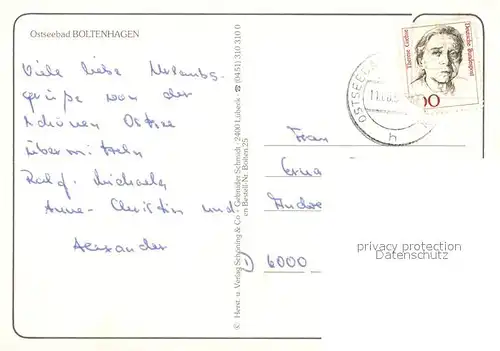 Ostseebad BOLTENHAGEN
Viele liebe Urlaubs-
grüße von der
schönen Ostsee
übermitteln
Ralf, Michaela
Anne-Christin und
Alexander
© Herst. u. Verlag Schöning & Co + Gebrüder Schmidt · 2400 Lübeck · ☎ (0451) 310 310 0
en Bestell-Nr. Bolten 25
Therese Giehse
Deutsche Bundespost
00
OSTSEE
h
Frau
6000
privacy protection
Datenschutz